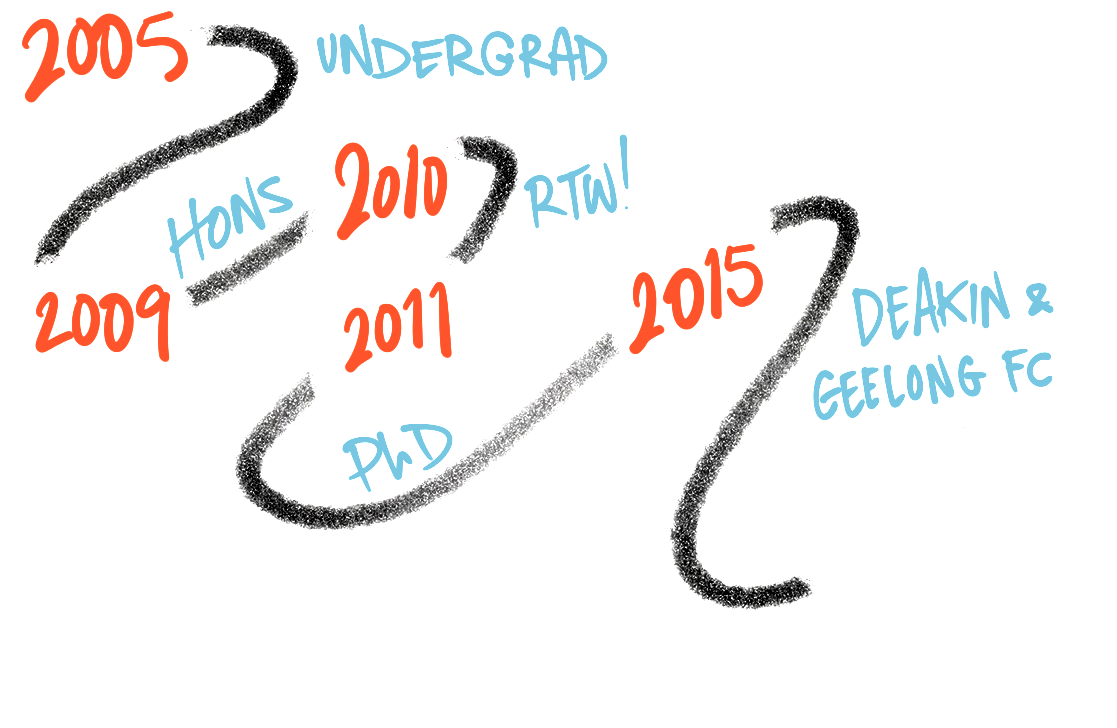 2005
UNDERGRAD
2009
HONS
2010
RTW!
2011
PhD
2015
DEAKIN &
GEELONG FC